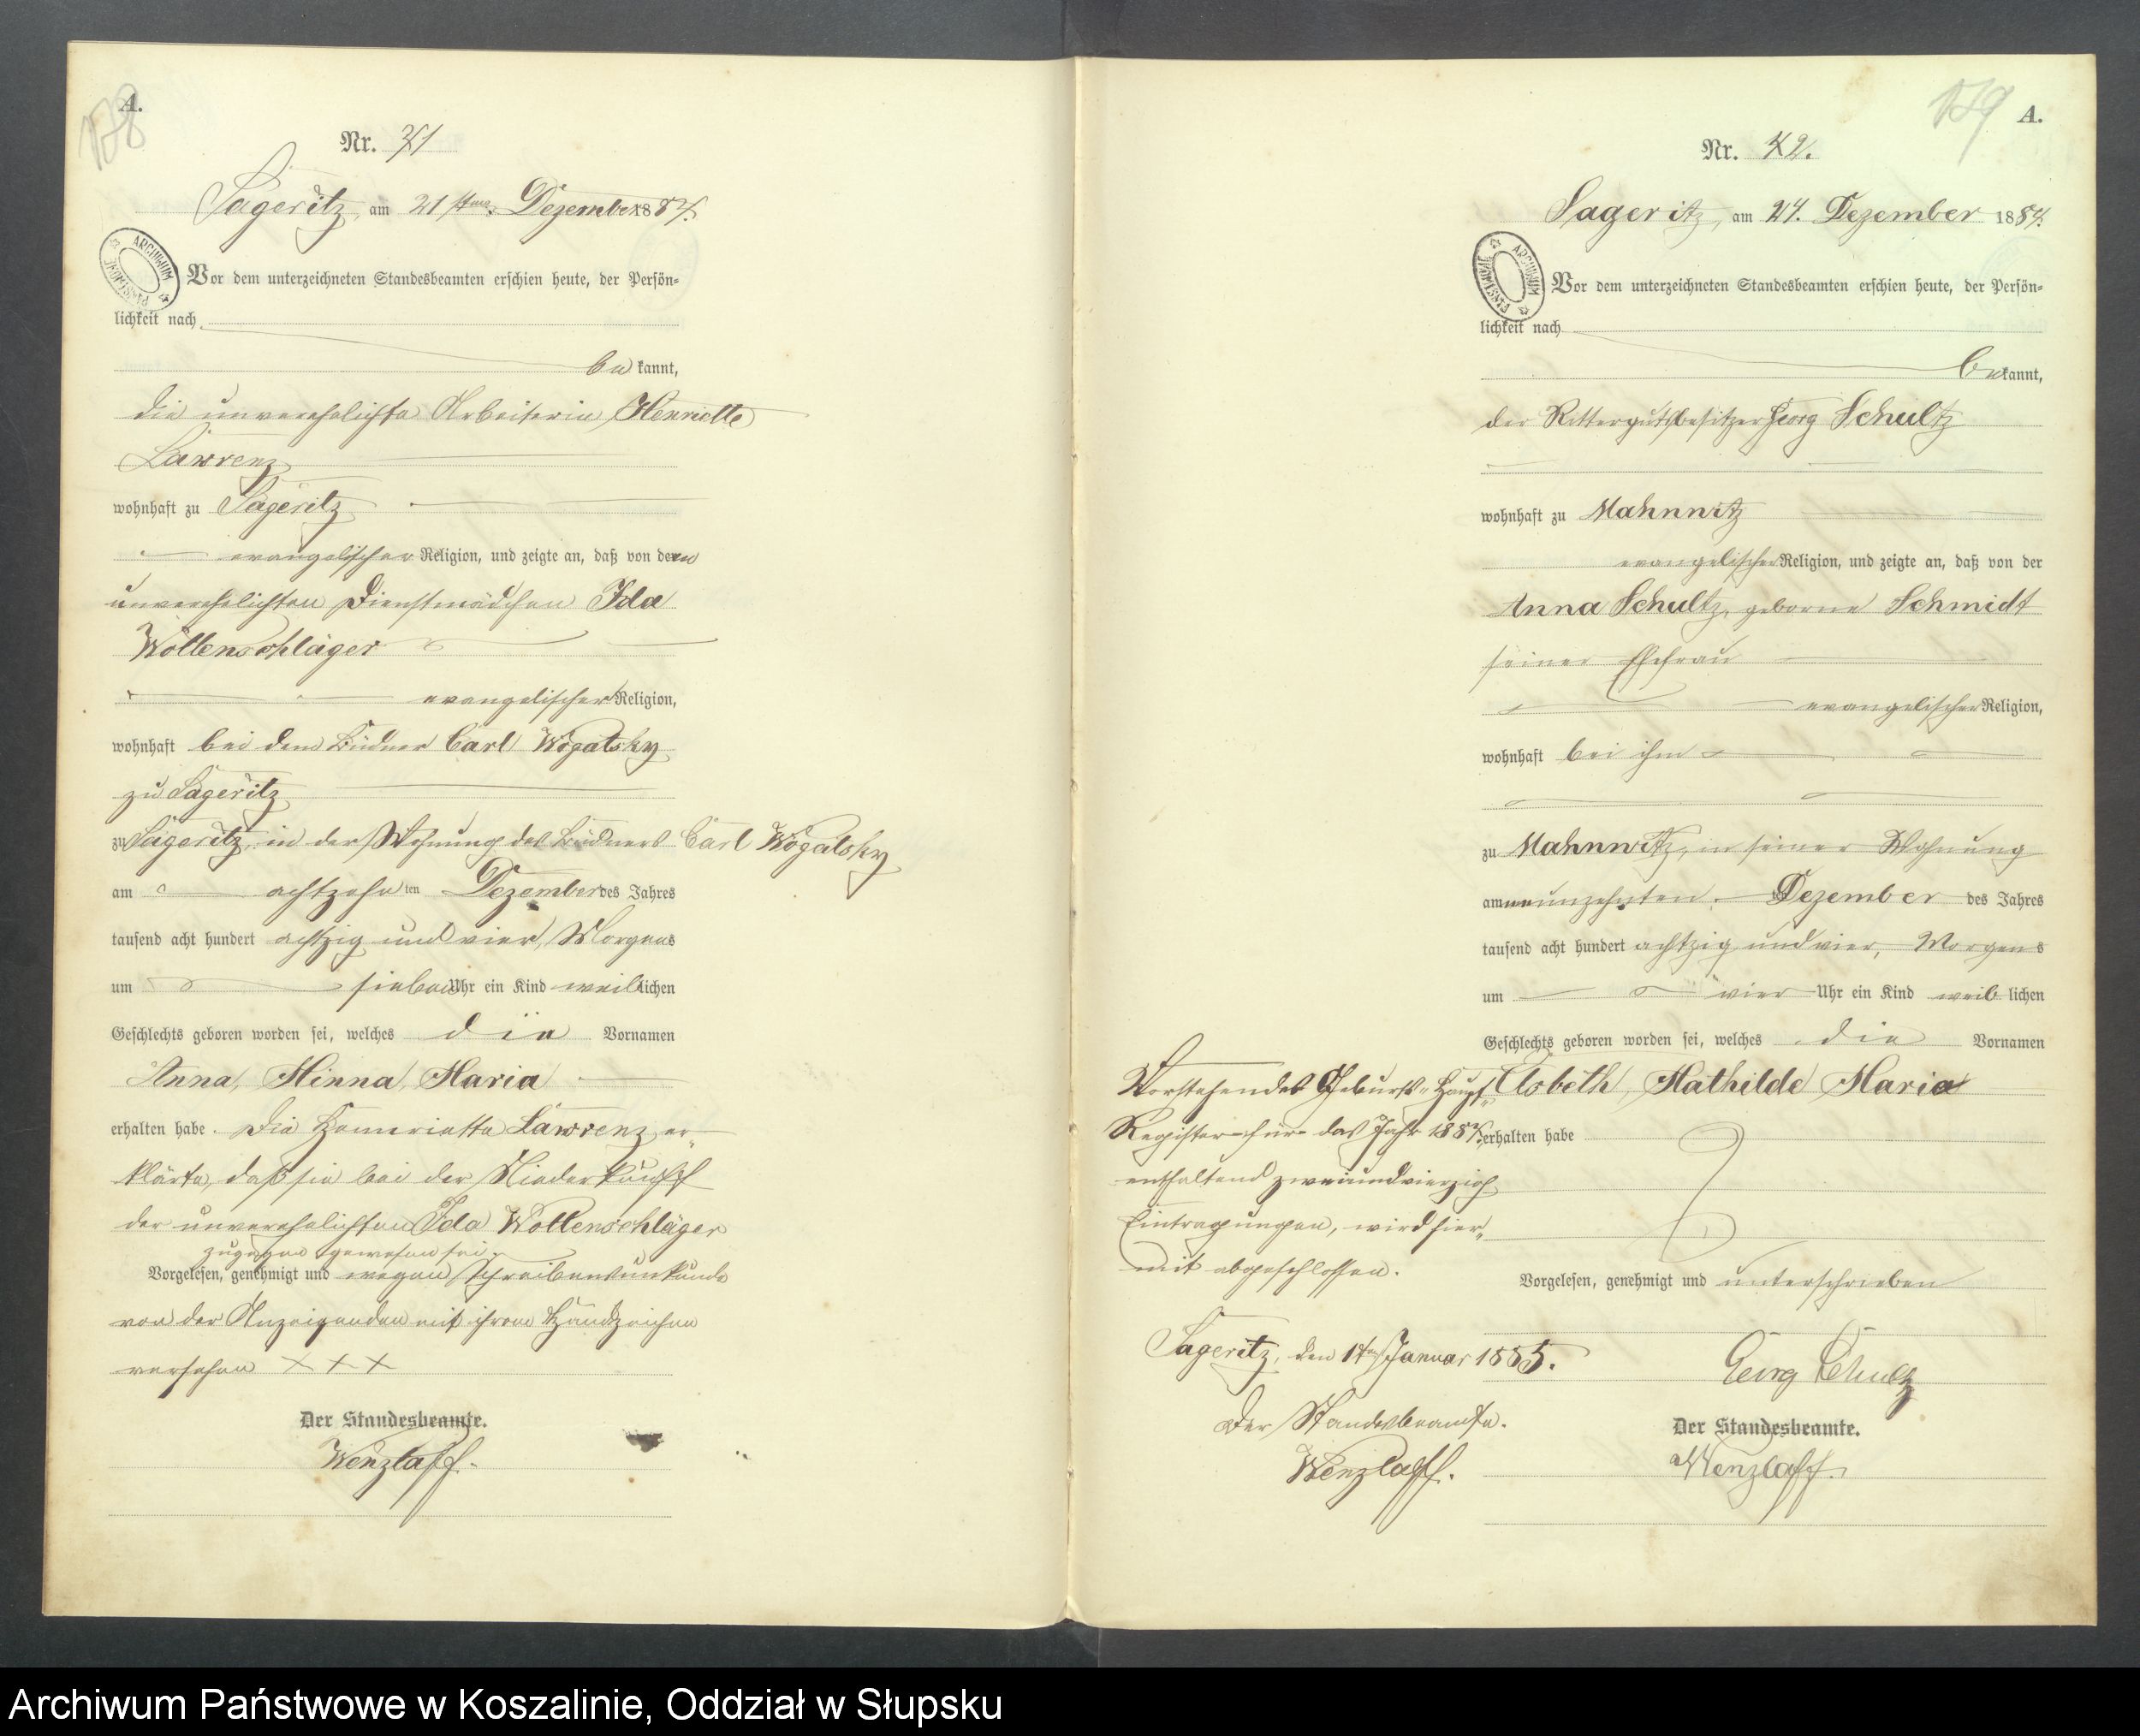 A.
138
Nr. 41
Sageritz, am 21sten Dezember 1884.
ARCHIWUM PAŃSTWOWE
Vor dem unterzeichneten Standesbeamten erschien heute, der Persön-
lichkeit nach
be kannt,
die unverehelichte Arbeiterin Henriette
Lawrenz
wohnhaft zu Sageritz
evangelischer Religion, und zeigte an, daß von der
unverehelichten Dienstmädchen Ida
Wollenschläger
evangelischer Religion,
wohnhaft bei dem Büdner Carl Wogatsky
zu Sageritz
zu Sageritz in der Wohnung des Büdners Carl Wogatsky
am achtzehn ten Dezember des Jahres
tausend acht hundert achtzig und vier, Morgens
um sieben Uhr ein Kind weiblichen
Geschlechts geboren worden sei, welches die Vornamen
Anna, Minna, Maria
erhalten habe. Die Hennriette Lawrenz er-
klärte, daß sie bei der Niederkunft
der unverehelichten Ida Wollenschläger
zugegen gewesen sei.
Vorgelesen, genehmigt und wegen Schreibensunkunde
von der Anzeigenden mit ihrem Handzeichen
versehen + + +
Der Standesbeamte.
Wenzlaff.
139
A.
Nr. 42.
Sageritz, am 24. Dezember 1884.
ARCHIWUM PAŃSTWOWE
Vor dem unterzeichneten Standesbeamten erschien heute, der Persön-
lichkeit nach
be kannt,
der Rittergutsbesitzer Georg Schultz
wohnhaft zu Mahnwitz
evangelischer Religion, und zeigte an, daß von der
Anna Schultz, geborne Schmidt
seiner Ehefrau
evangelischer Religion,
wohnhaft bei ihm
zu Mahnwitz, in seiner Wohnung
am neunzehnten Dezember des Jahres
tausend acht hundert achtzig und vier, Morgens
um vier Uhr ein Kind weiblichen
Geschlechts geboren worden sei, welches die Vornamen
Elsbeth, Mathilde Maria
erhalten habe
Vorgelesen, genehmigt und unterschrieben
Georg Schultz
Der Standesbeamte.
Wenzlaff.
Vorstehendes Geburts-Haupt-
Register für das Jahr 1884.
enthaltend zweiundvierzig
Eintragungen, wird hier-
mit abgeschlossen.
Sageritz, den 1ten Januar 1885.
Der Standesbeamte.
Wenzlaff.
Archiwum Państwowe w Koszalinie, Oddział w Słupsku